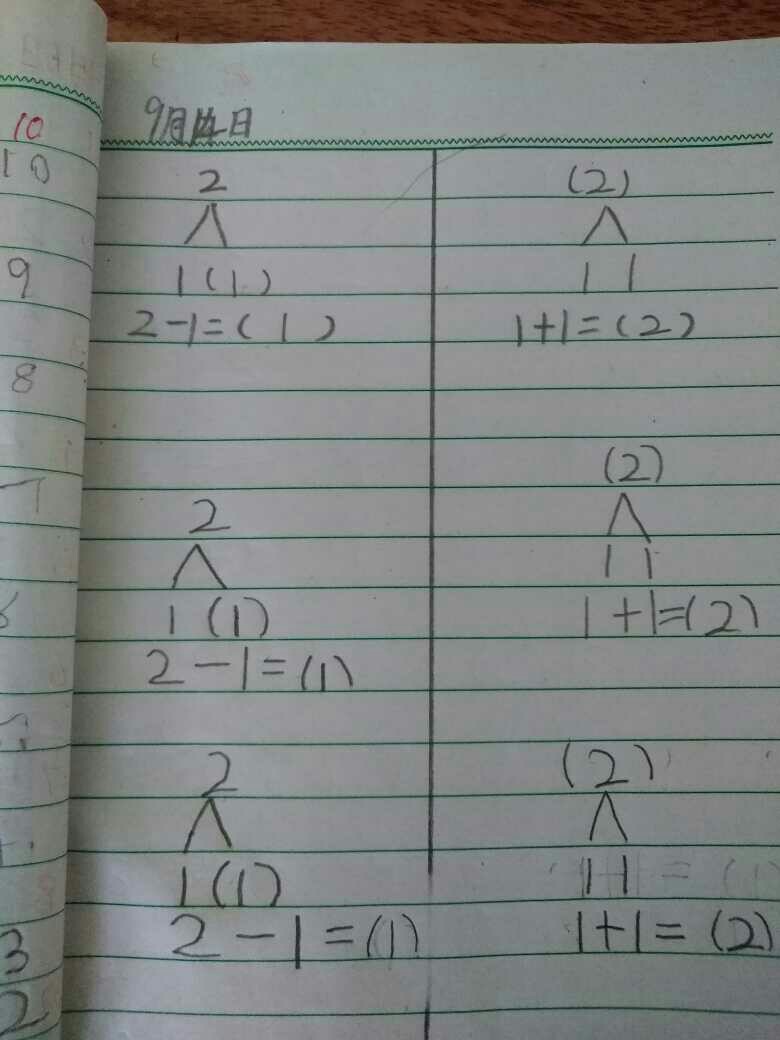 9月14日
2
1 (1)
2-1=(1)
(2)
1 1
1+1=(2)
2
1 (1)
2-1=(1)
(2)
1 1
1+1=(2)
2
1 (1)
2-1=(1)
(2)
1 1
1+1=(2)
10
10
9
8
7
3
2